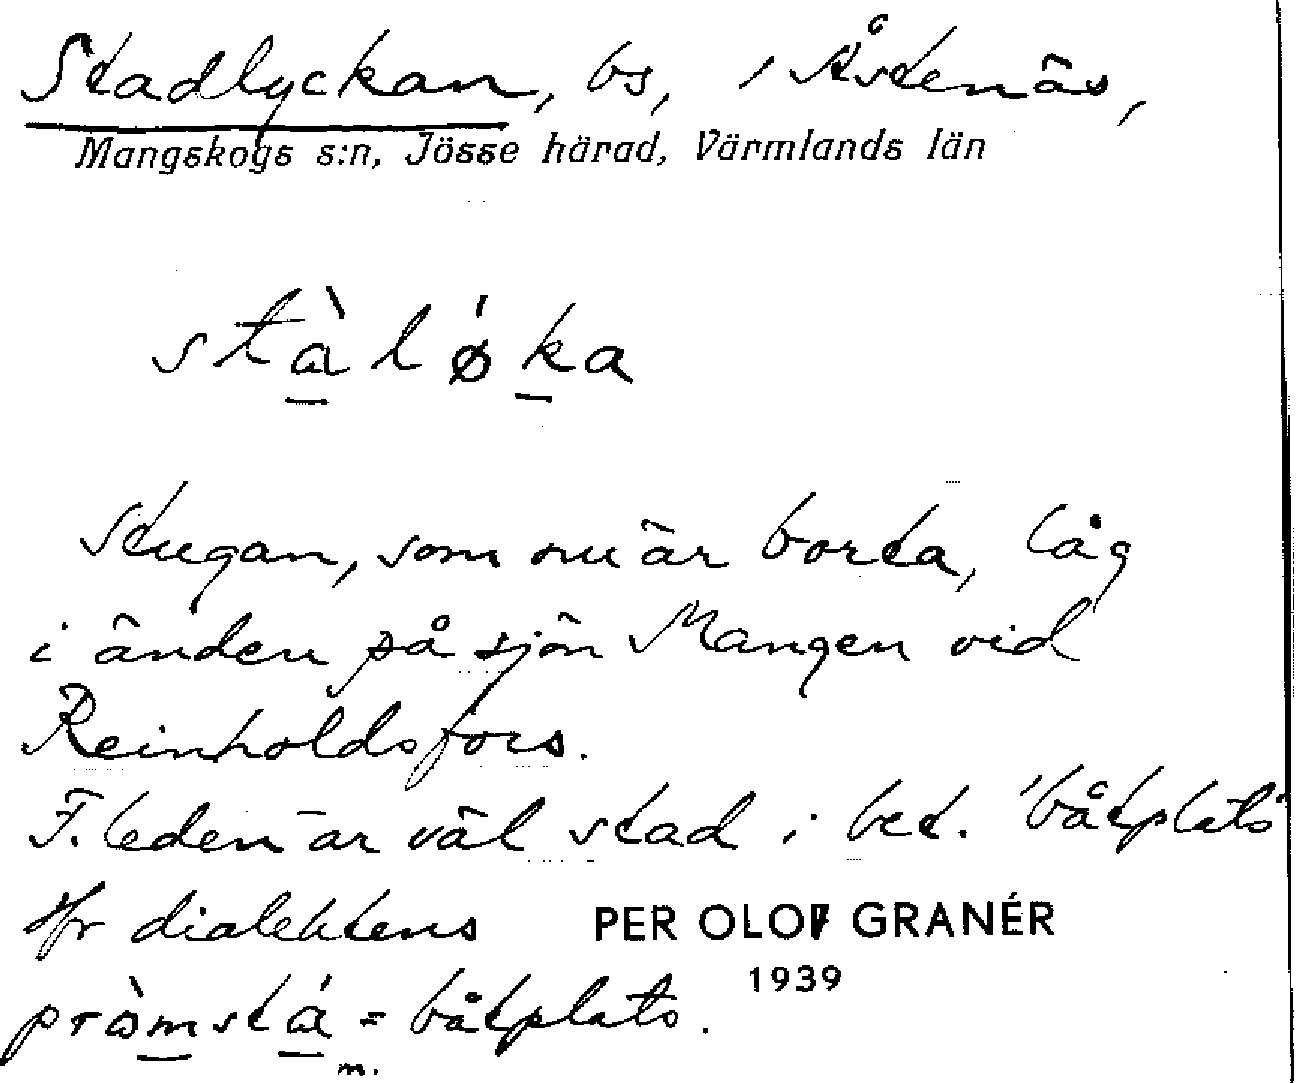 Stadlyckan, bs, i Åstenäs,
Mangskogs s:n, Jösse härad, Värmlands län
stàlǿka
Stugan, som nu är borta, låg
i änden på sjön Mangen vid
Reinholdsfors.
F. leden är väl stad i bet. 'båtplats'
Jfr dialektens
pråmstá = båtplats.
m.
PER OLOF GRANÉR
1939